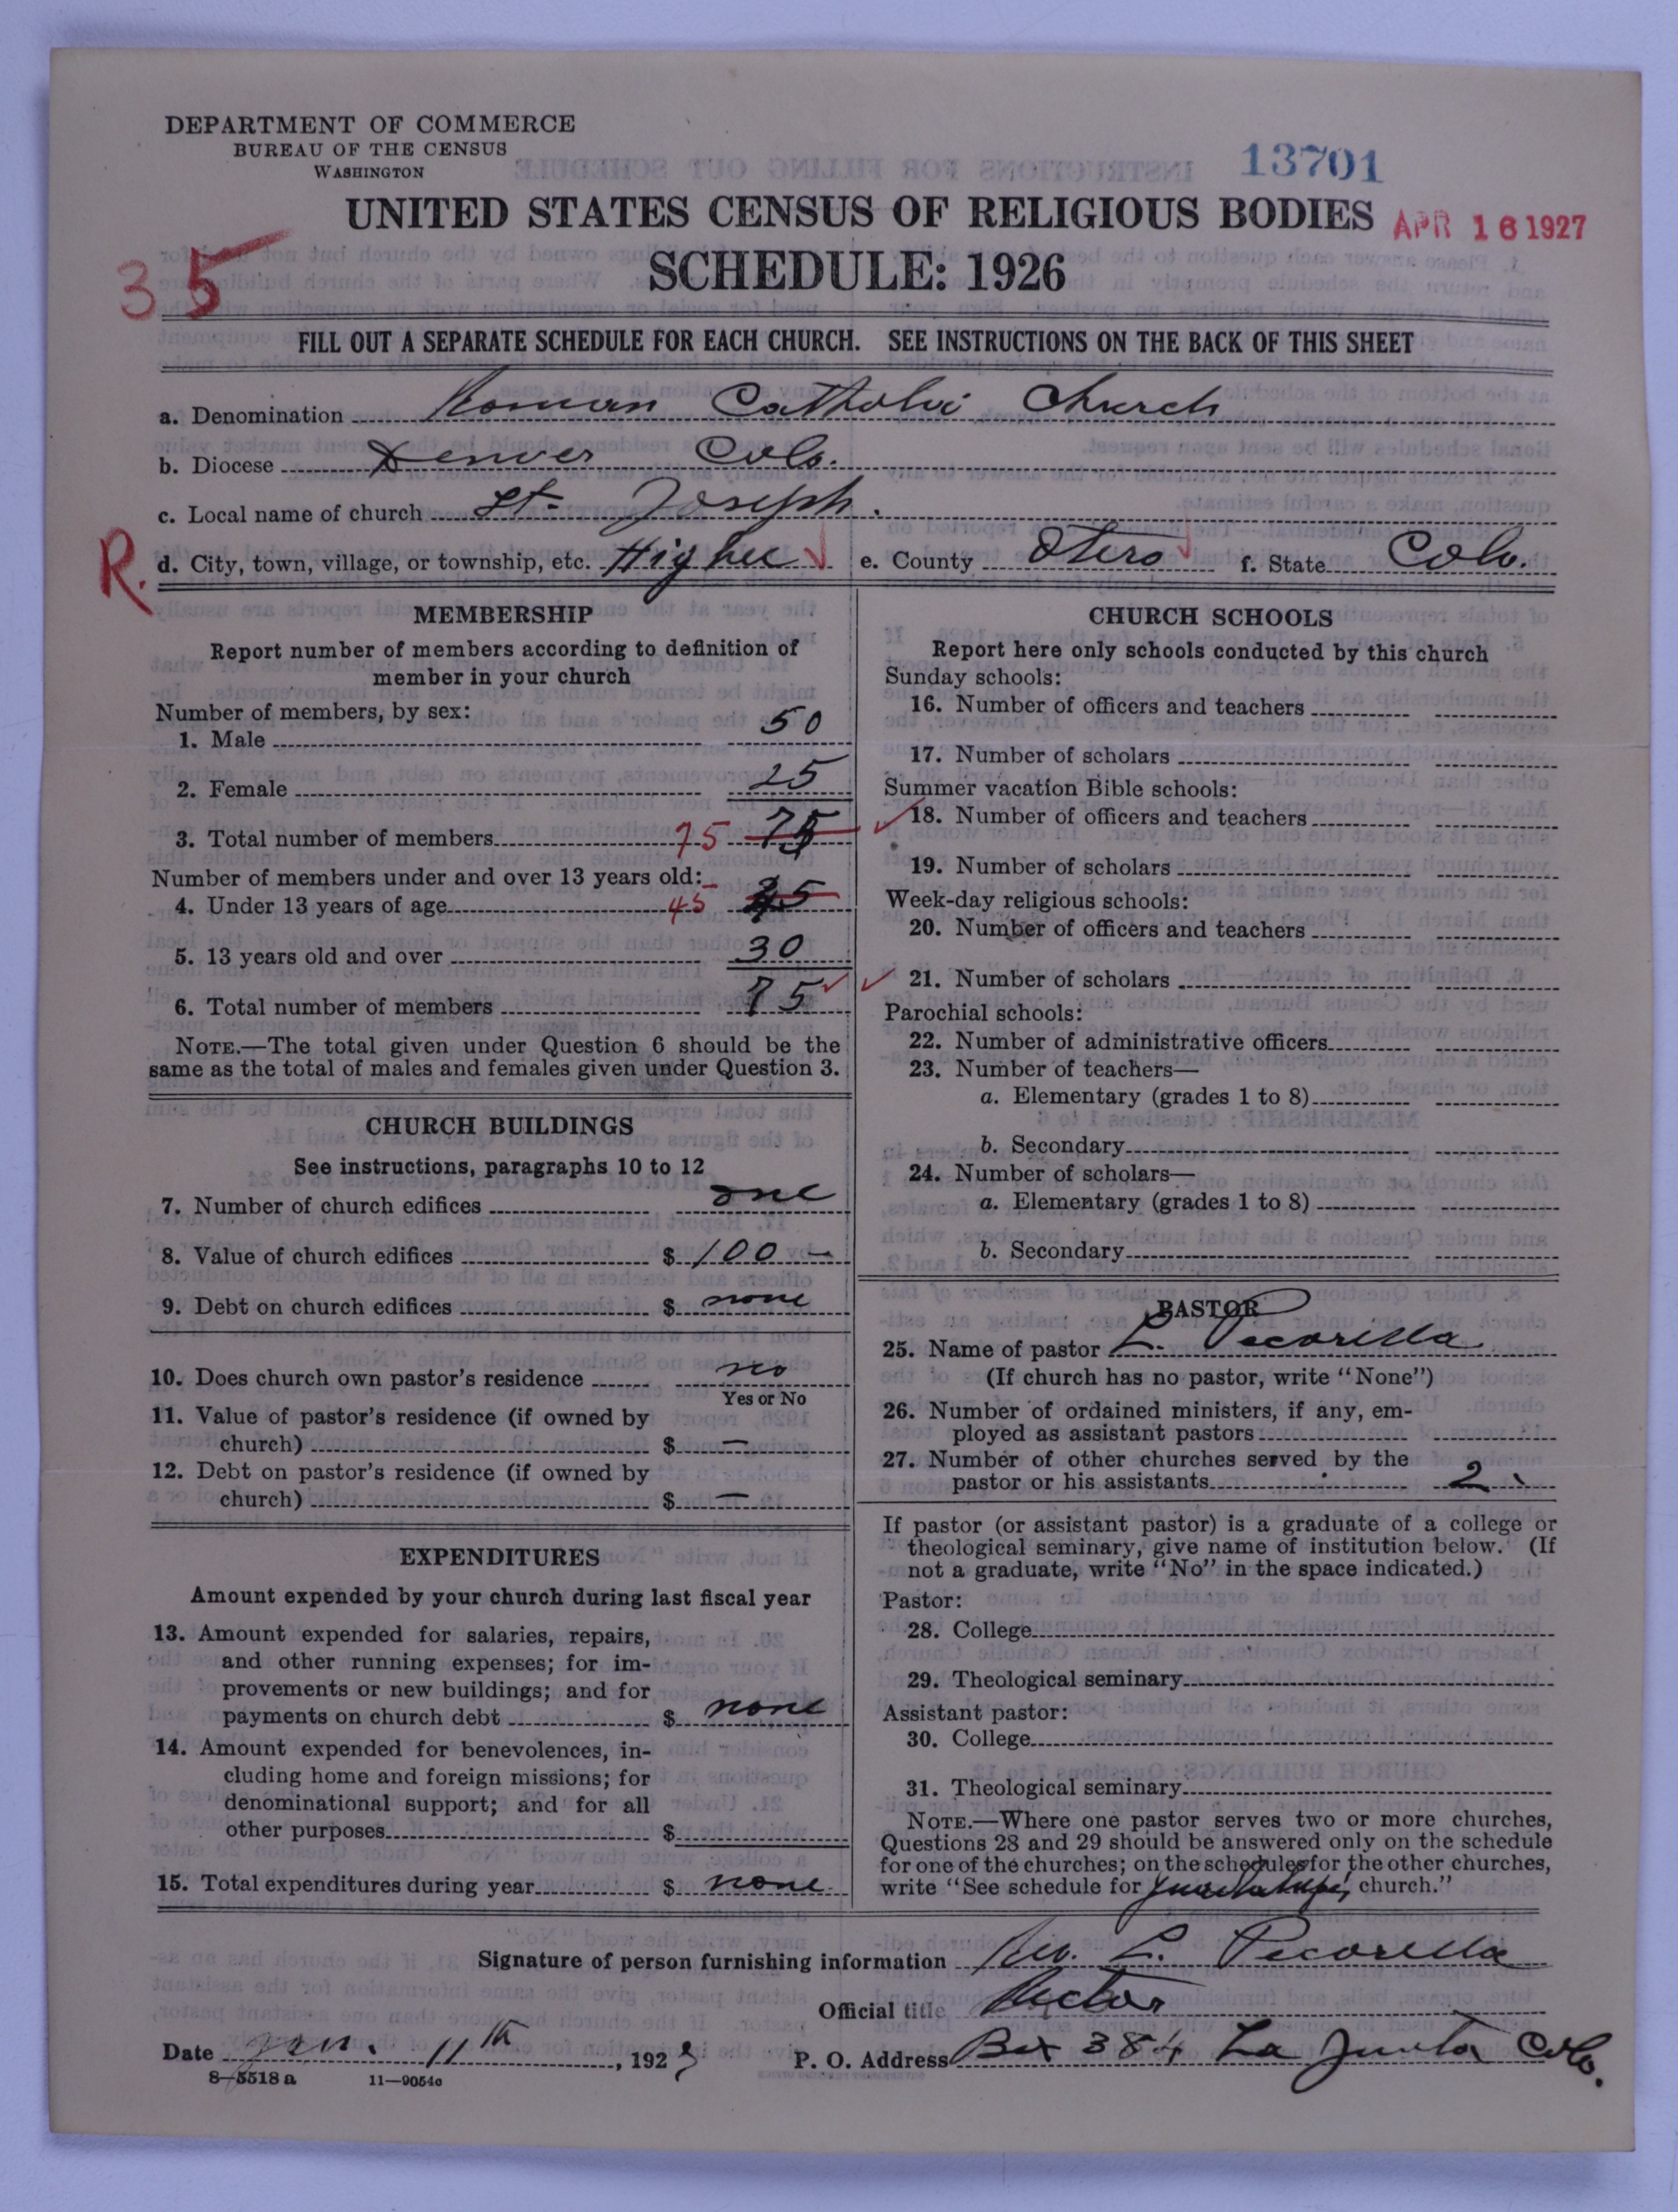 DEPARTMENT OF COMMERCE
BUREAU OF THE CENSUS
WASHINGTON
13701
UNITED STATES CENSUS OF RELIGIOUS BODIES
APR 16 1927
SCHEDULE: 1926
35
FILL OUT A SEPARATE SCHEDULE FOR EACH CHURCH. SEE INSTRUCTIONS ON THE BACK OF THIS SHEET
a. Denomination Roman Catholic Church
b. Diocese Denver Colo.
c. Local name of church St. Joseph.
R.
d. City, town, village, or township, etc. Higbee e. County Otero f. State Colo.
MEMBERSHIP
Report number of members according to definition of
member in your church
Number of members, by sex:
1. Male 50
2. Female 25
3. Total number of members 75 75
Number of members under and over 13 years old:
4. Under 13 years of age 45
5. 13 years old and over 30
6. Total number of members 75
NOTE.—The total given under Question 6 should be the
same as the total of males and females given under Question 3.
CHURCH BUILDINGS
See instructions, paragraphs 10 to 12
7. Number of church edifices one
8. Value of church edifices $ 100 —
9. Debt on church edifices $ none
10. Does church own pastor's residence no
Yes or No
11. Value of pastor's residence (if owned by
church) $ —
12. Debt on pastor's residence (if owned by
church) $ —
EXPENDITURES
Amount expended by your church during last fiscal year
13. Amount expended for salaries, repairs,
and other running expenses; for im-
provements or new buildings; and for
payments on church debt $ none
14. Amount expended for benevolences, in-
cluding home and foreign missions; for
denominational support; and for all
other purposes $
15. Total expenditures during year $ none
CHURCH SCHOOLS
Report here only schools conducted by this church
Sunday schools:
16. Number of officers and teachers
17. Number of scholars
Summer vacation Bible schools:
18. Number of officers and teachers
19. Number of scholars
Week-day religious schools:
20. Number of officers and teachers
21. Number of scholars
Parochial schools:
22. Number of administrative officers
23. Number of teachers—
a. Elementary (grades 1 to 8)
b. Secondary
24. Number of scholars—
a. Elementary (grades 1 to 8)
b. Secondary
PASTOR
25. Name of pastor L. Pecorella
(If church has no pastor, write "None")
26. Number of ordained ministers, if any, em-
ployed as assistant pastors
27. Number of other churches served by the
pastor or his assistants 2
If pastor (or assistant pastor) is a graduate of a college or
theological seminary, give name of institution below. (If
not a graduate, write "No" in the space indicated.)
Pastor:
28. College
29. Theological seminary
Assistant pastor:
30. College
31. Theological seminary
NOTE.—Where one pastor serves two or more churches,
Questions 28 and 29 should be answered only on the schedule
for one of the churches; on the schedules for the other churches,
write "See schedule for church."
Signature of person furnishing information Rev. L. Pecorella
Official title Rector
Date Jan. 11th, 192
P. O. Address Box 384 La Junta Colo.
8—5518 a 11—9054c